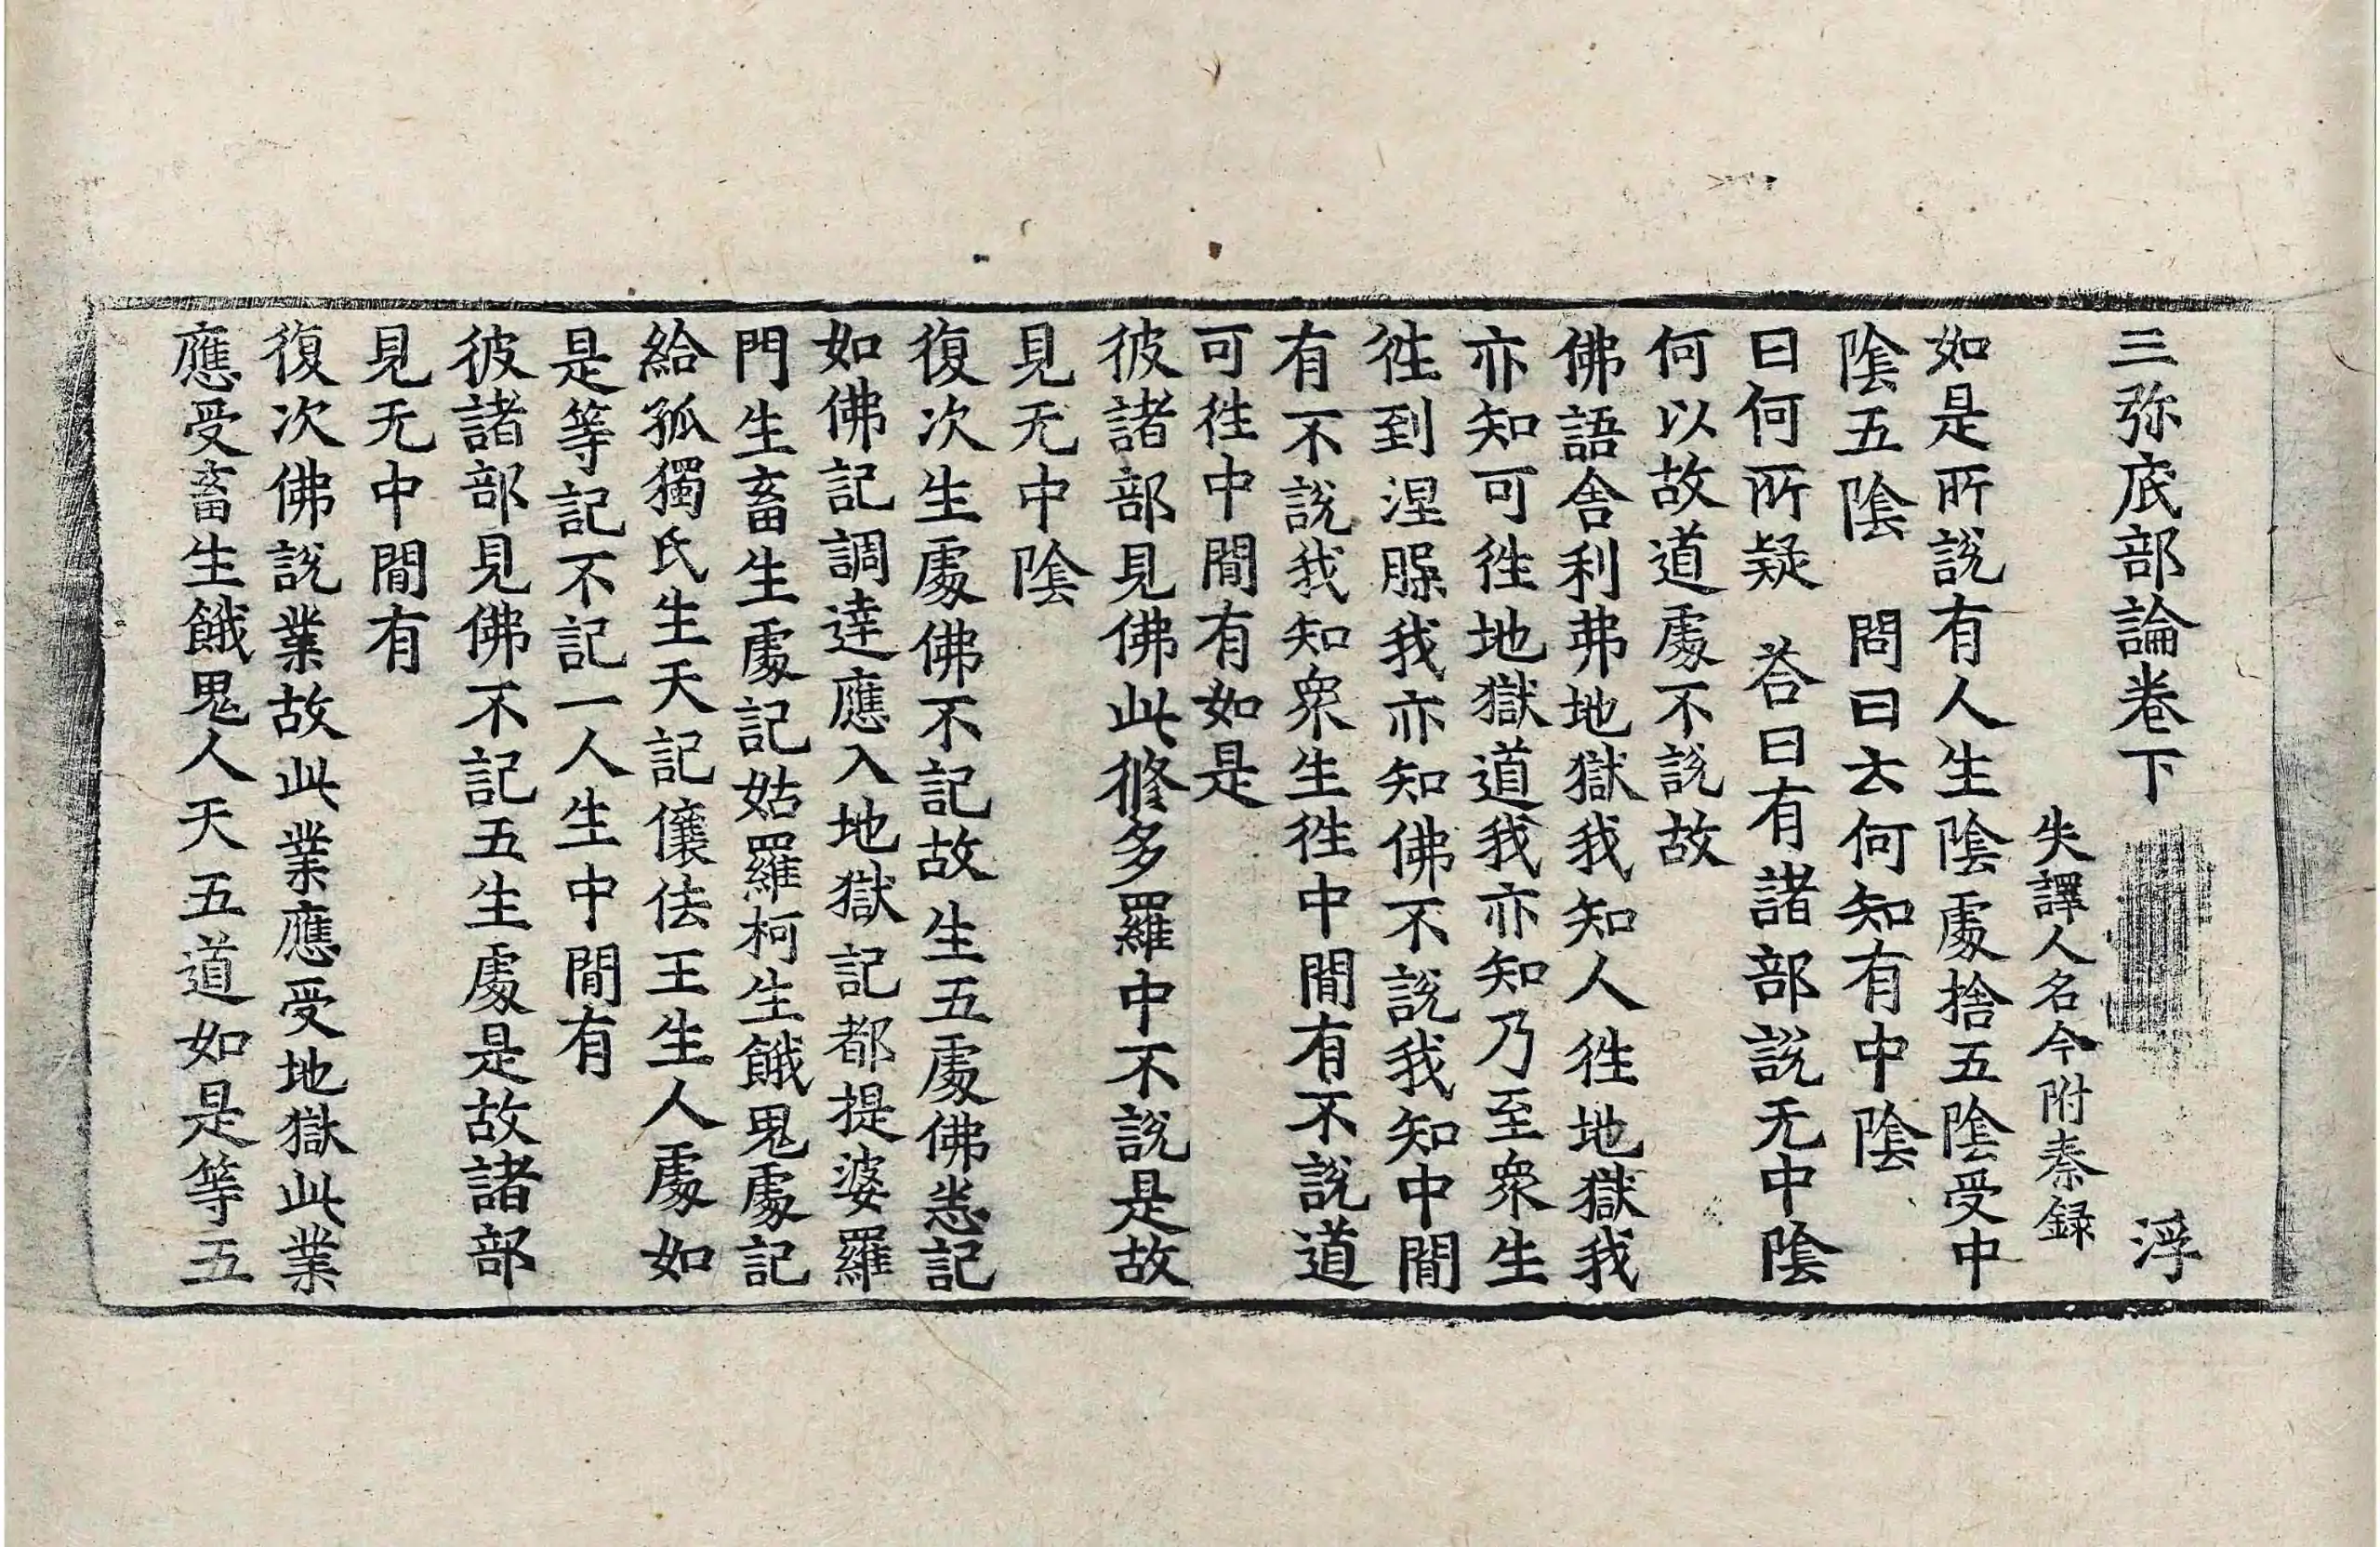 三弥底部論卷下 浮
失譯人名今附秦録
如是所說有人生陰處捨五陰受中
陰五陰 問曰云何知有中陰
曰何所疑 荅曰有諸部說无中陰
何以故道處不說故
佛語舍利弗地獄我知人徃地獄我
亦知可徃地獄道我亦知乃至衆生
徃到涅槃我亦知佛不說我知中閒
有不說我知衆生徃中閒有不說道
可徃中閒有如是
彼諸部見佛此修多羅中不說是故
見无中陰
復次生處佛不記故生五處佛悉記
如佛記調達應入地獄記都提婆羅
門生畜生處記姑羅柯生餓鬼處記
給孤獨氏生天記儴佉王生人處如
是等記不記一人生中閒有
彼諸部見佛不記五生處是故諸部
見无中閒有
復次佛說業故此業應受地獄此業
應受畜生餓鬼人天五道如是等五